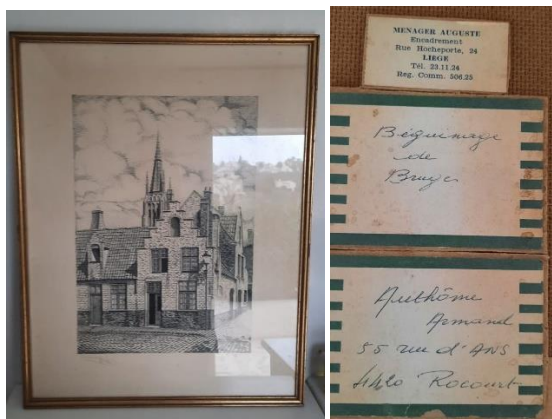 MENAGER AUGUSTE
Encadrement
Rue Hocheporte, 24
LIEGE
Tél. 23.11.24
Reg. Comm. 506.25
Béguinage
de
Bruges
Armand
55 rue d'ANS
4420 Rocourt